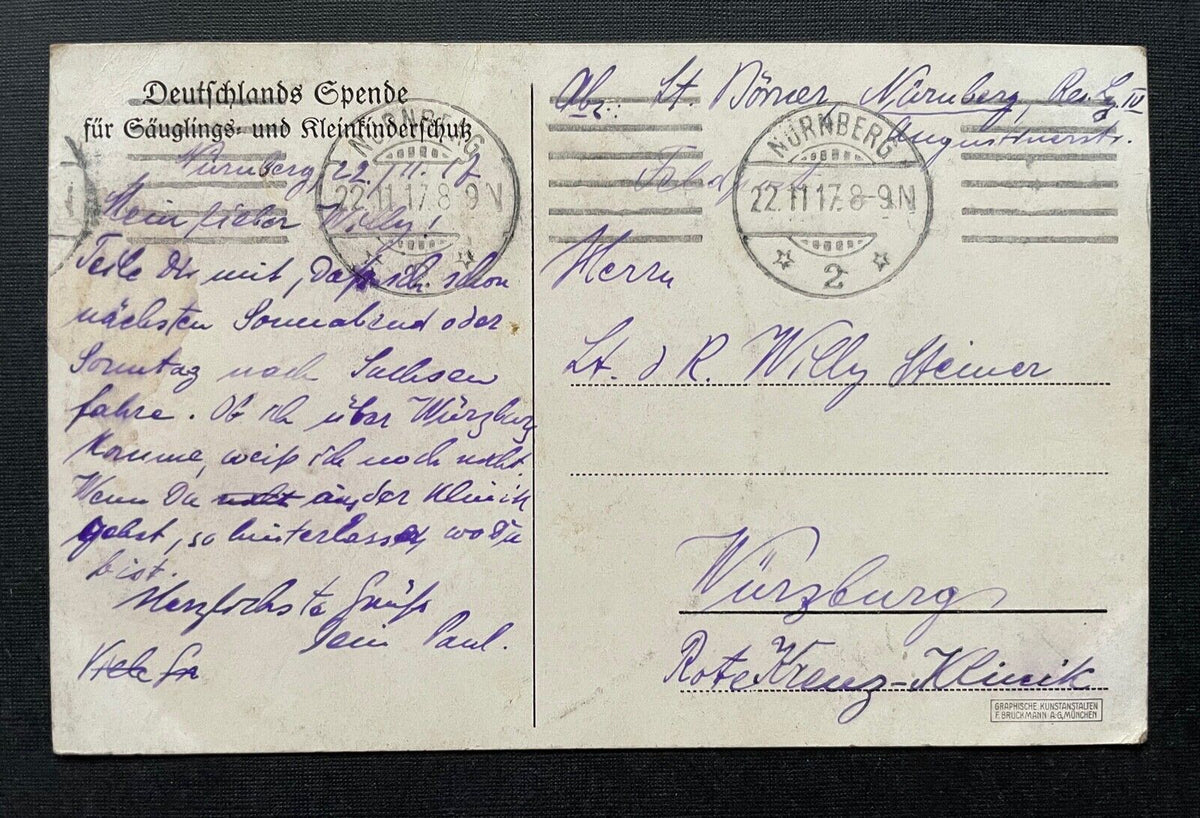 Deutschlands Spende
für Säuglings- und Kleinkinderschutz
Nürnberg 22. 11. 17
Mein lieber Willy!
Teile Dir mit, daß ich schon
nächsten Sonnabend oder
Sonntag nach Sachsen
fahre. Ob ich über Würzburg
komme, weiß ich noch nicht.
Wenn Du nicht aus der Klinik
gehst, so hinterlass, wo Du
bist.
Herzlichste Grüße
Dein Paul.
Viele Gr
Abs.: Lt. Börner, Nürnberg, Res. Lz. IV
Augustinerstr.
Feldpost
NÜRNBERG
22.11.17. 8-9 N
NÜRNBERG
22.11.17. 8-9 N
2
Herrn
Lt. d R. Willy Steiner
Würzburg
Rote Kreuz-Klinik
GRAPHISCHE KUNSTANSTALTEN
F. BRUCKMANN A.G., MÜNCHEN